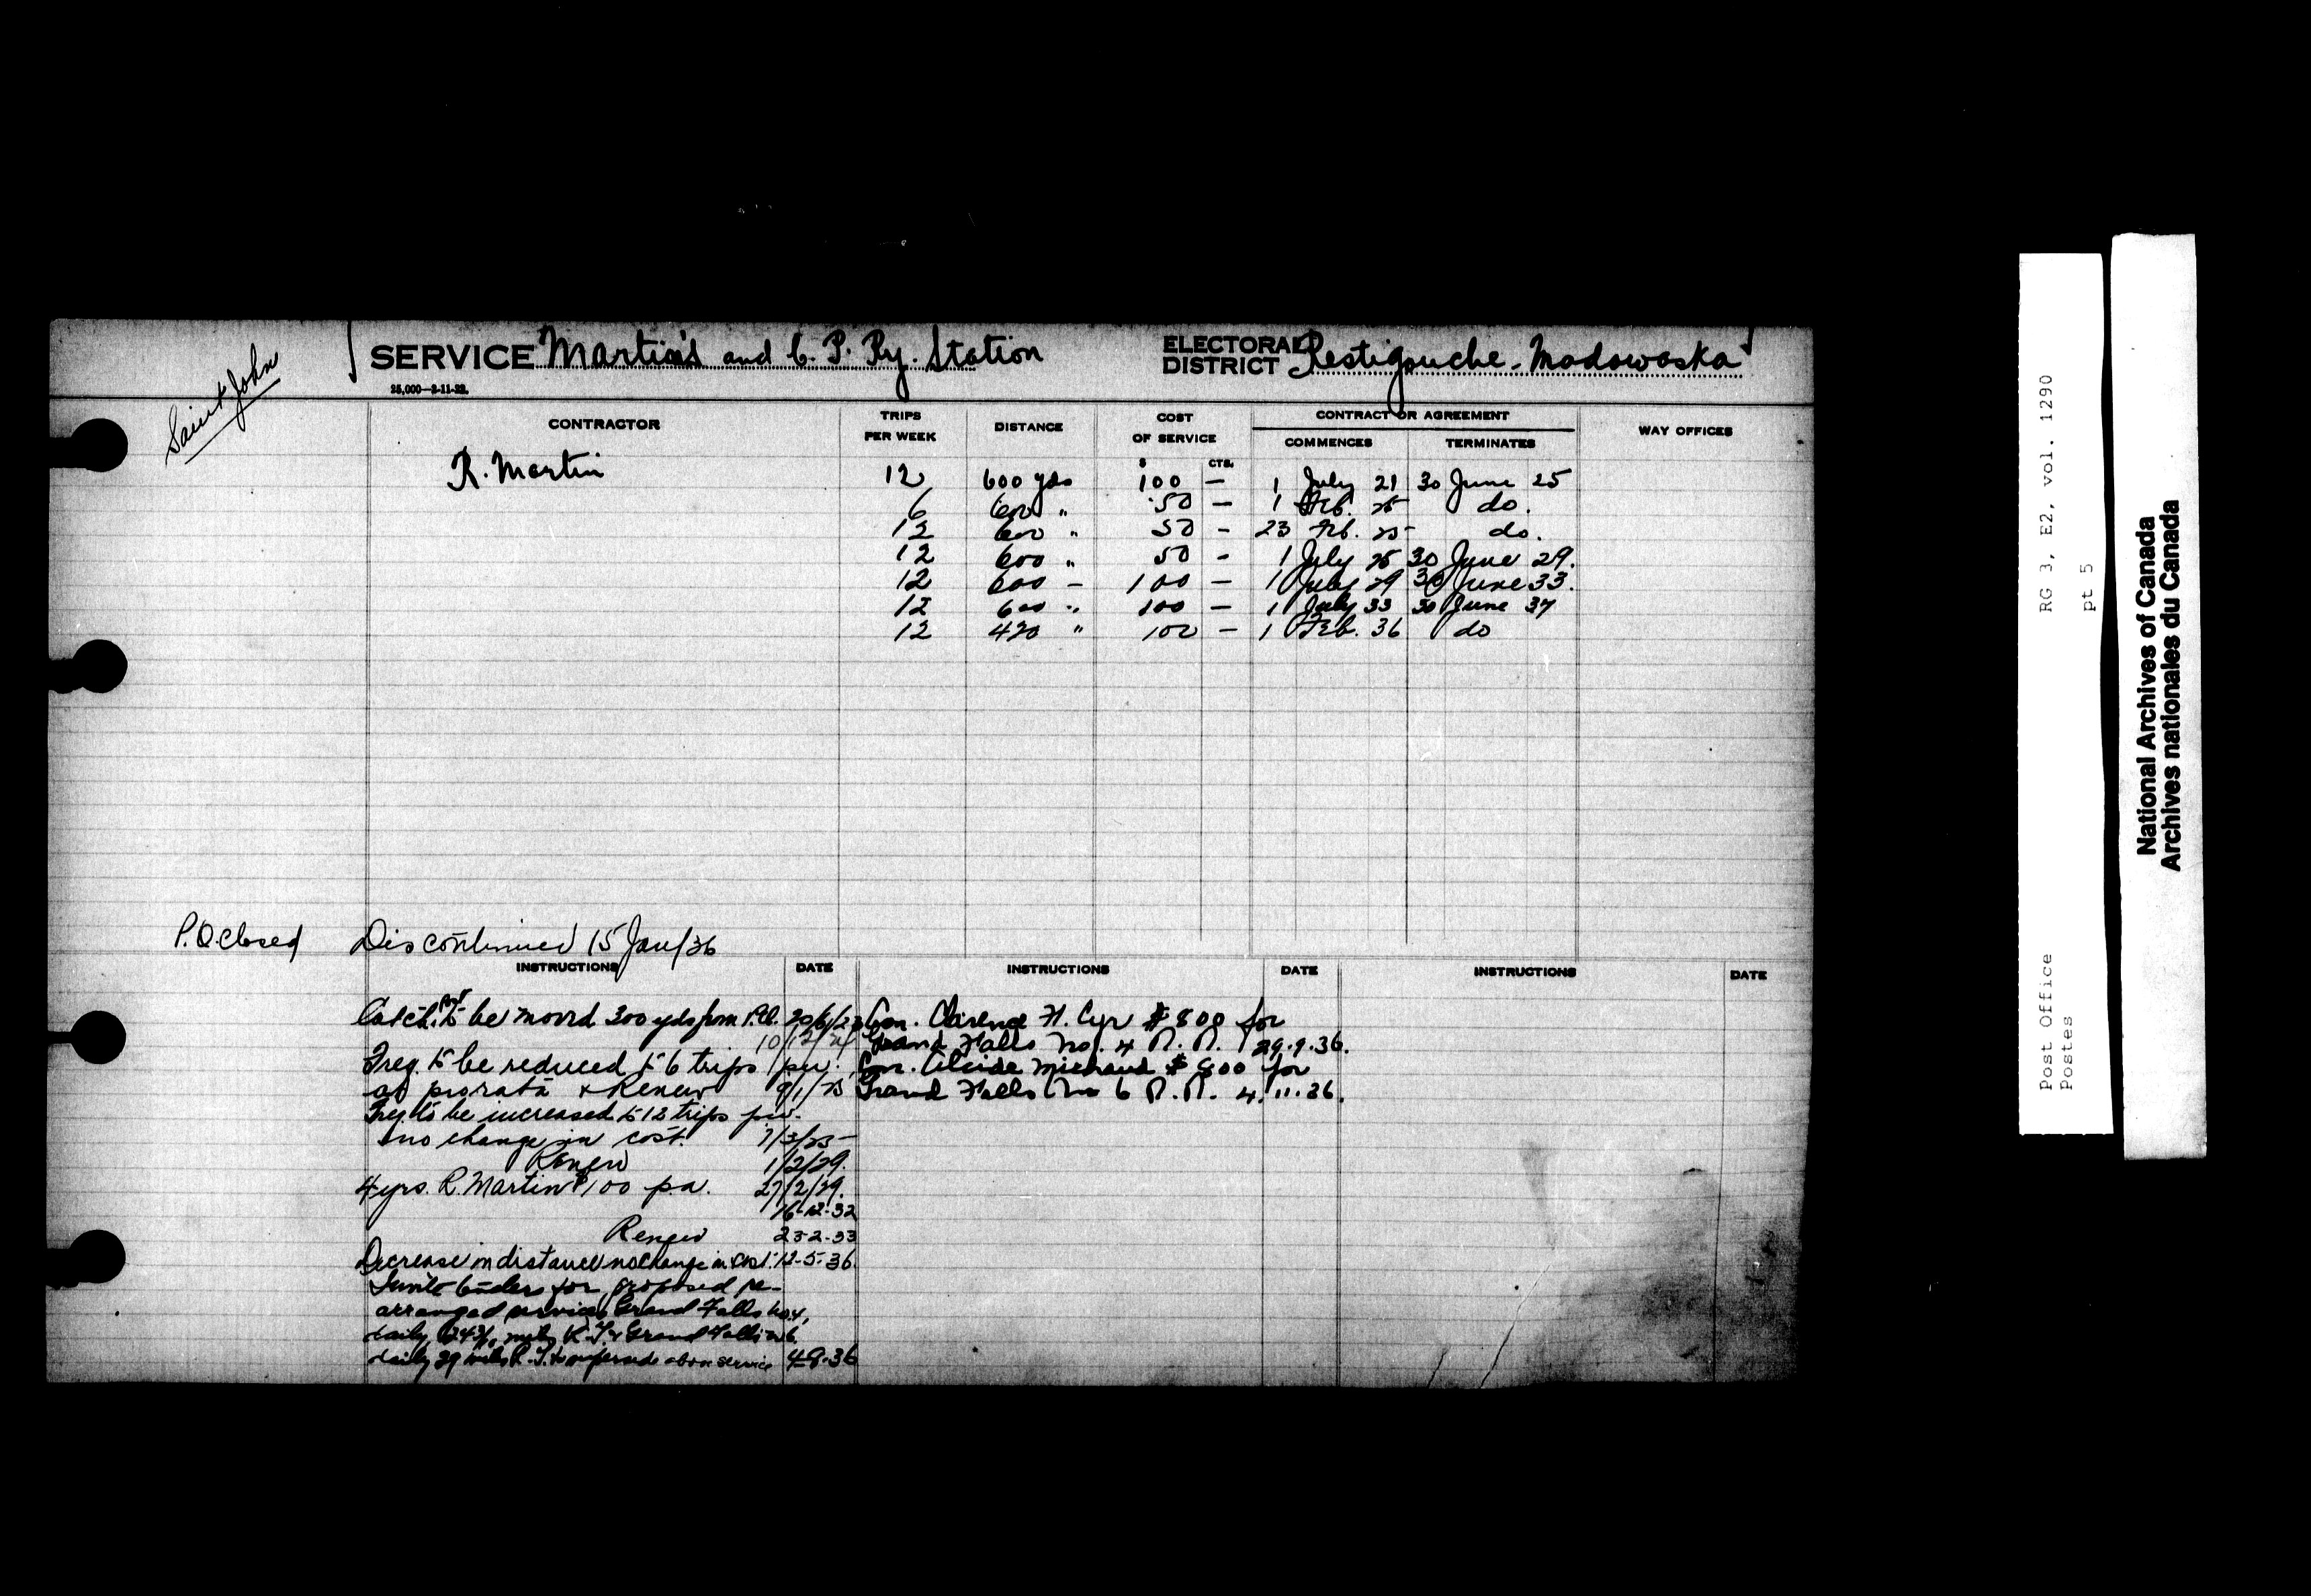 Saint John
SERVICE Martin's and C. P. Ry. Station ELECTORAL DISTRICT Restigouche-Madawaska
25,000—2-11-22.
CONTRACTOR TRIPS PER WEEK DISTANCE COST OF SERVICE CONTRACT OR AGREEMENT WAY OFFICES
COMMENCES TERMINATES
$ CTS.
R. Martin 12 600 yds 100 — 1 July 21 30 June 25
6 600 " 50 — 1 Feb. 25 do.
12 600 " 50 — 23 Feb. 25 do.
12 600 " 50 - 1 July 25 30 June 29.
12 600 — 100 — 1 July 29 30 June 33.
12 600 " 100 — 1 July 33 30 June 37
12 420 " 100 — 1 Feb. 36 do
P.O. closed Discontinued 15 Jan/36
INSTRUCTIONS DATE INSTRUCTIONS DATE INSTRUCTIONS DATE
Catch. post to be moved 300 yds from P.O. 20/6/23
10/12/24
Freq. to be reduced to 6 trips pw.
at prorata & Renew 9/1/25
Freq. to be increased to 12 trips pw.
no change in cost. 7/3/25
Renew 1/2/29.
4 yrs. R. Martin $100 p.a. 27/2/29.
16-12-32
Renew 23-2-33
Decrease in distance no change in cost. 12-5-36.
Invite tenders for proposed re-
arranged services Grand Falls No 4,
daily, 24 3/4 miles R.T. & Grand Falls no 6
daily 29 miles R.T. to supersede above service 4-8-36
Con. Clarence H. Cyr $800 for
Grand Falls No. 4 R. R. 29.9.36.
Con. Alcide Michaud $800 for
Grand Falls No 6 R. R. 4.11.36.
Post Office RG 3, E2, vol. 1290
Postes pt 5
National Archives of Canada
Archives nationales du Canada